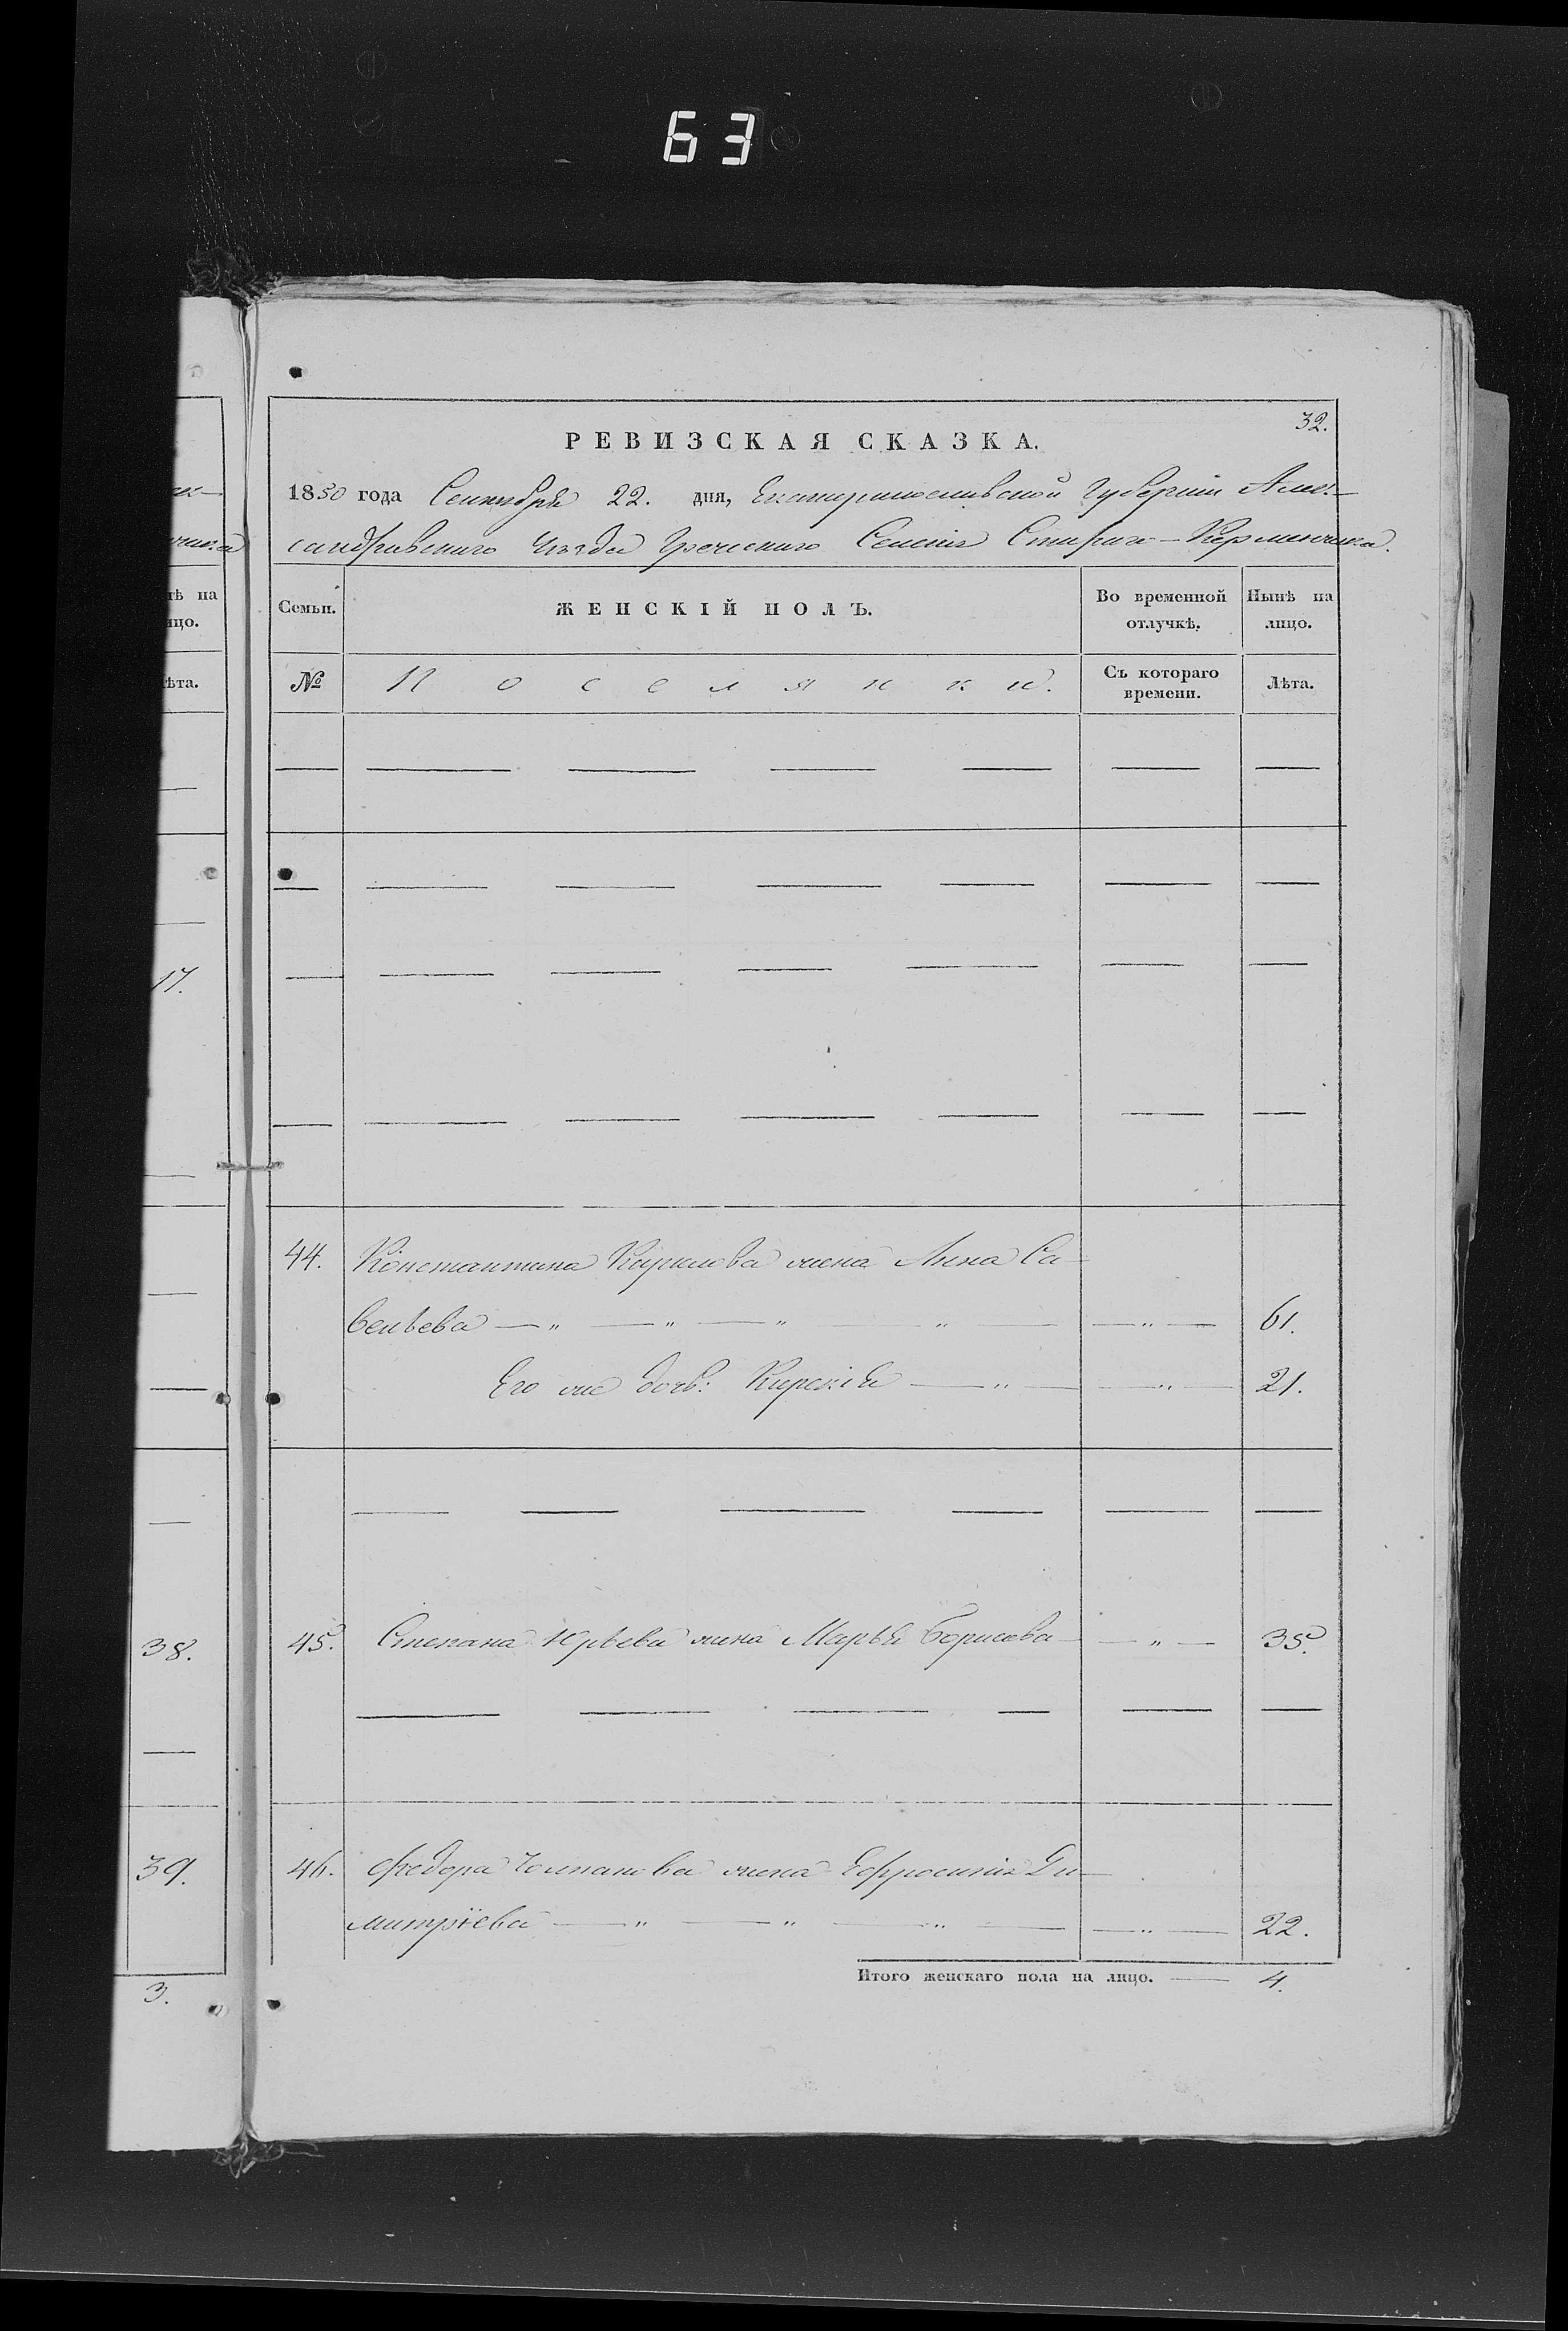 63
32.
РЕВИЗСКАЯ СКАЗКА.
1850 года Сентября 22. дня, Екатеринославской Губернии Алек-
сандровскаго Уѣзда Греческаго Селенія Стараго-Керменчика.
Семьи.
ЖЕНСКІЙ ПОЛЪ.
Во временной отлучкѣ.
Нынѣ на лицо.
№
Поселянки.
Съ котораго времени.
Лѣта.
44. Константина Кирилова жена Анна Са-
вельева — " — " — " — " — — " — 61.
Его же дочь: — " — — " — 21.
45. Степана Юрьева жена Марья Борисова — — " — 35.
46. Федора жена Ефросинія Ди-
митріева — " — " — " — — " — 22.
Итого женскаго пола на лицо. — 4.
17.
38.
39.
3.